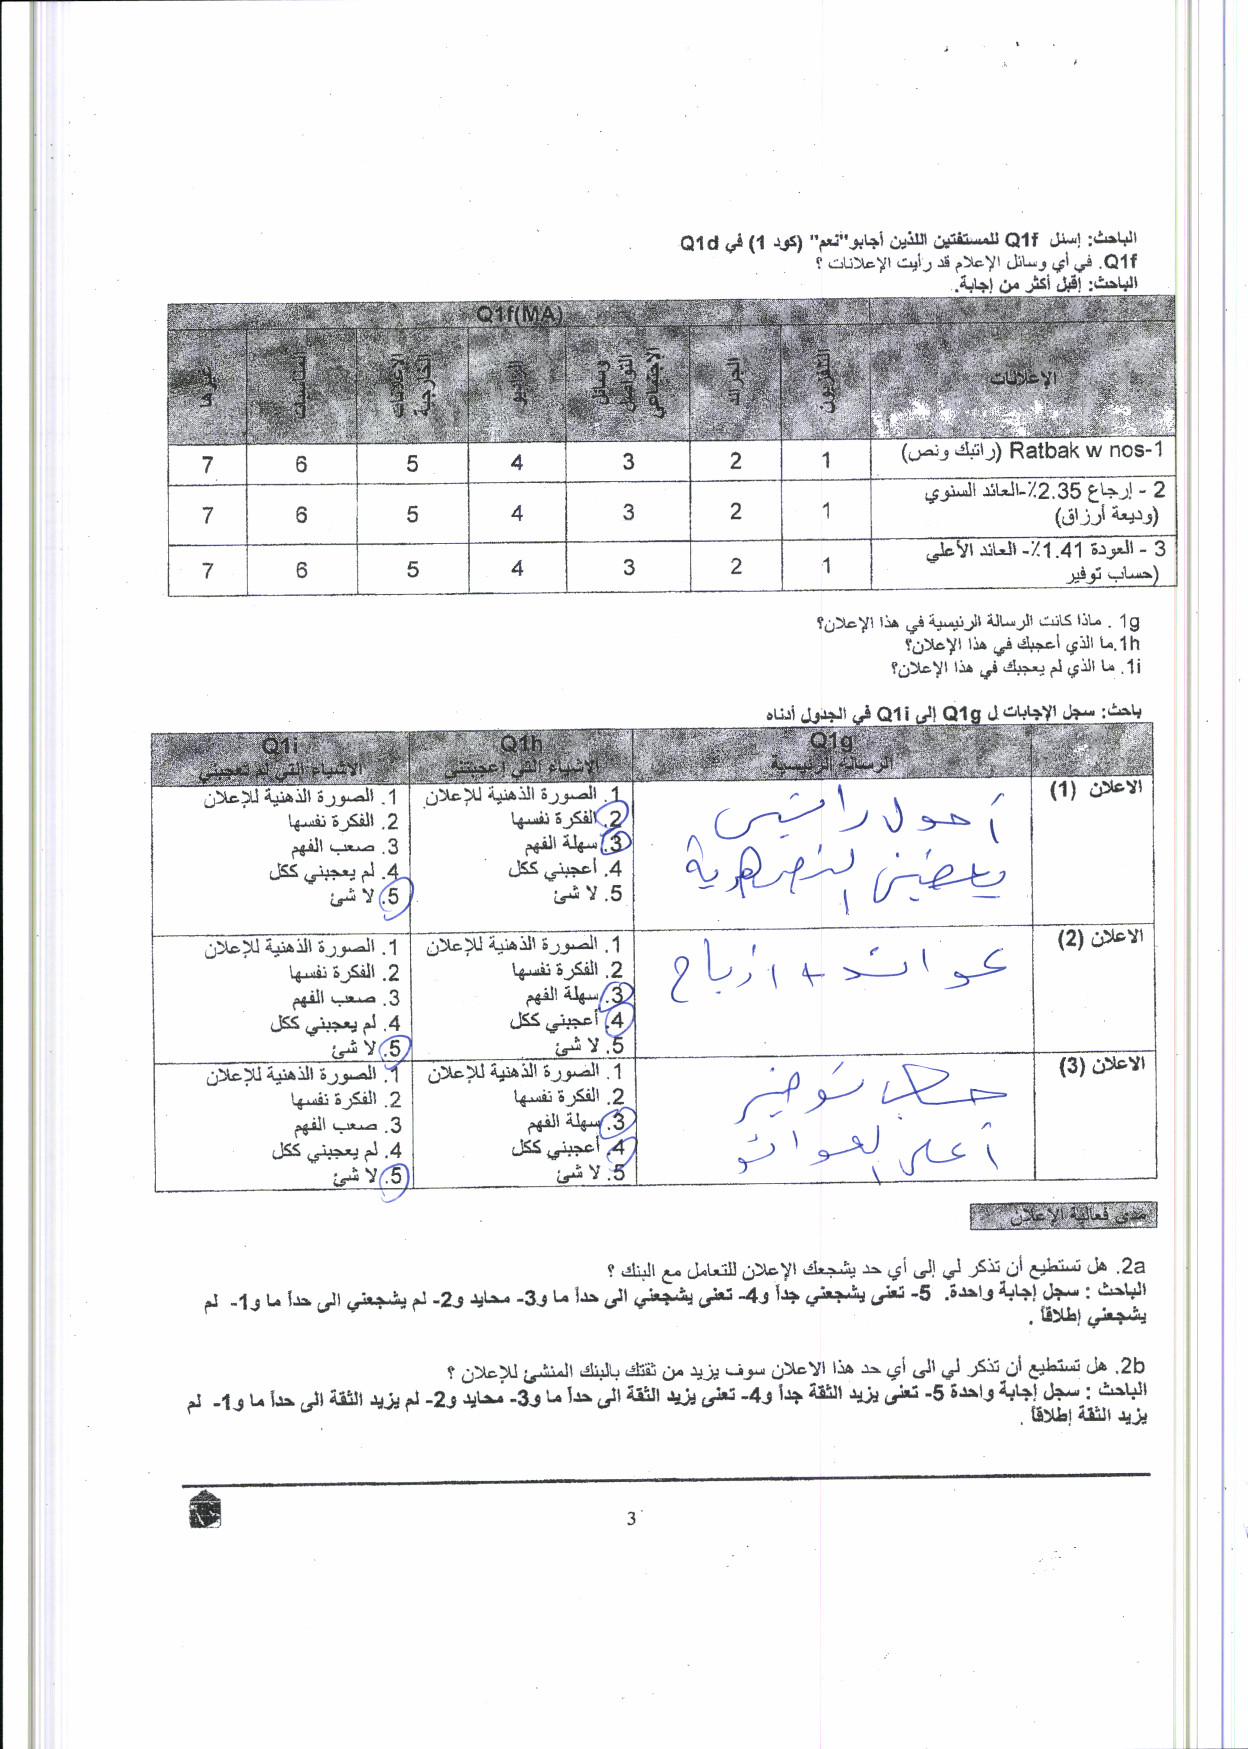 الباحث: إسئل Q1f للمستفتين اللذين أجابو"نعم" (كود 1) في Q1d
Q1f. في أي وسائل الإعلام قد رأيت الإعلانات ؟
الباحث: إقبل أكثر من إجابة.
Q1f(MA)
الإعلانات التلفزيون الجرائد وسائل التواصل الاجتماعي الراديو الإعلانات الخارجية غيرها
1-Ratbak w nos (راتبك ونص) 1 2 3 4 5 6 7
2 - إرجاع 2.35٪-العائد السنوي (وديعة أرزاق) 1 2 3 4 5 6 7
3 - العودة 1.41٪- العائد الأعلي (حساب توفير 1 2 3 4 5 6 7
1g . ماذا كانت الرسالة الرئيسية في هذا الإعلان؟
1h.ما الذي أعجبك في هذا الإعلان؟
1i. ما الذي لم يعجبك في هذا الإعلان؟
باحث: سجل الإجابات ل Q1g إلى Q1i في الجدول أدناه
Q1g الرسالة الرئيسية
Q1h الاشياء التي اعجبتني
Q1i الاشياء التي لم تعجبني
الاعلان (1)
أحول راتبي
يعطيني
1. الصورة الذهنية للإعلان
2. الفكرة نفسها
3. سهلة الفهم
4. أعجبني ككل
5. لا شئ
1. الصورة الذهنية للإعلان
2. الفكرة نفسها
3. صعب الفهم
4. لم يعجبني ككل
5. لا شئ
الاعلان (2)
عوائد + ارباح
1. الصورة الذهنية للإعلان
2. الفكرة نفسها
3. سهلة الفهم
4. أعجبني ككل
5. لا شئ
1. الصورة الذهنية للإعلان
2. الفكرة نفسها
3. صعب الفهم
4. لم يعجبني ككل
5. لا شئ
الاعلان (3)
حساب توفير
أعلى العوائد
1. الصورة الذهنية للإعلان
2. الفكرة نفسها
3. سهلة الفهم
4. أعجبني ككل
5. لا شئ
1. الصورة الذهنية للإعلان
2. الفكرة نفسها
3. صعب الفهم
4. لم يعجبني ككل
5. لا شئ
مدى فعالية الإعلان
2a. هل تستطيع أن تذكر لي إلى أي حد يشجعك الإعلان للتعامل مع البنك ؟
الباحث : سجل إجابة واحدة. 5- تعنى يشجعني جداً و4- تعنى يشجعني الى حداً ما و3- محايد و2- لم يشجعني الى حداً ما و1- لم
يشجعني إطلاقاً .
2b. هل تستطيع أن تذكر لي الى أي حد هذا الاعلان سوف يزيد من ثقتك بالبنك المنشئ للإعلان ؟
الباحث : سجل إجابة واحدة 5- تعنى يزيد الثقة جداً و4- تعنى يزيد الثقة الى حداً ما و3- محايد و2- لم يزيد الثقة الى حداً ما و1- لم
يزيد الثقة إطلاقاً .
3